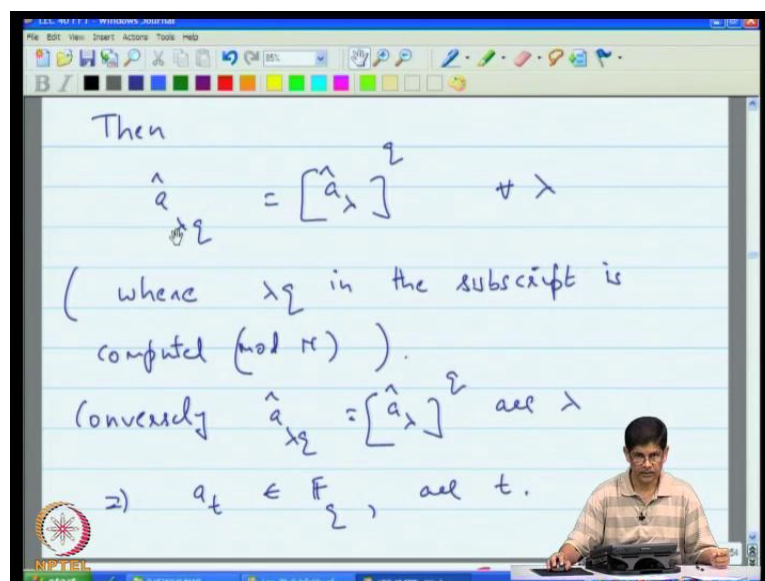 LEC 40 FFT - Windows Journal
File Edit View Insert Actions Tools Help
85%
B I
Then
â_{λq} = [â_λ]^q ∀ λ
( where λq in the subscript is
computed (mod N) ).
Conversely â_{λq} = [â_λ]^q all λ
⇒ a_t ∈ F_q, all t.
NPTEL
start